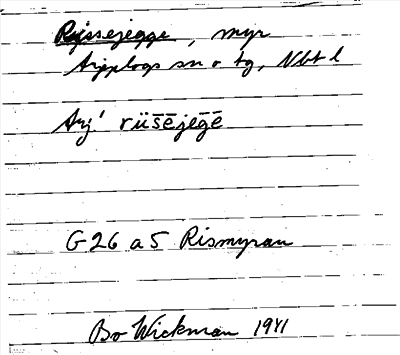 Rissejegge, myr
Arjeplogs sn o tg, Nbt l
Arj! rüšējegē
G 26 a 5 Rismyran
Bo Wickman 1941